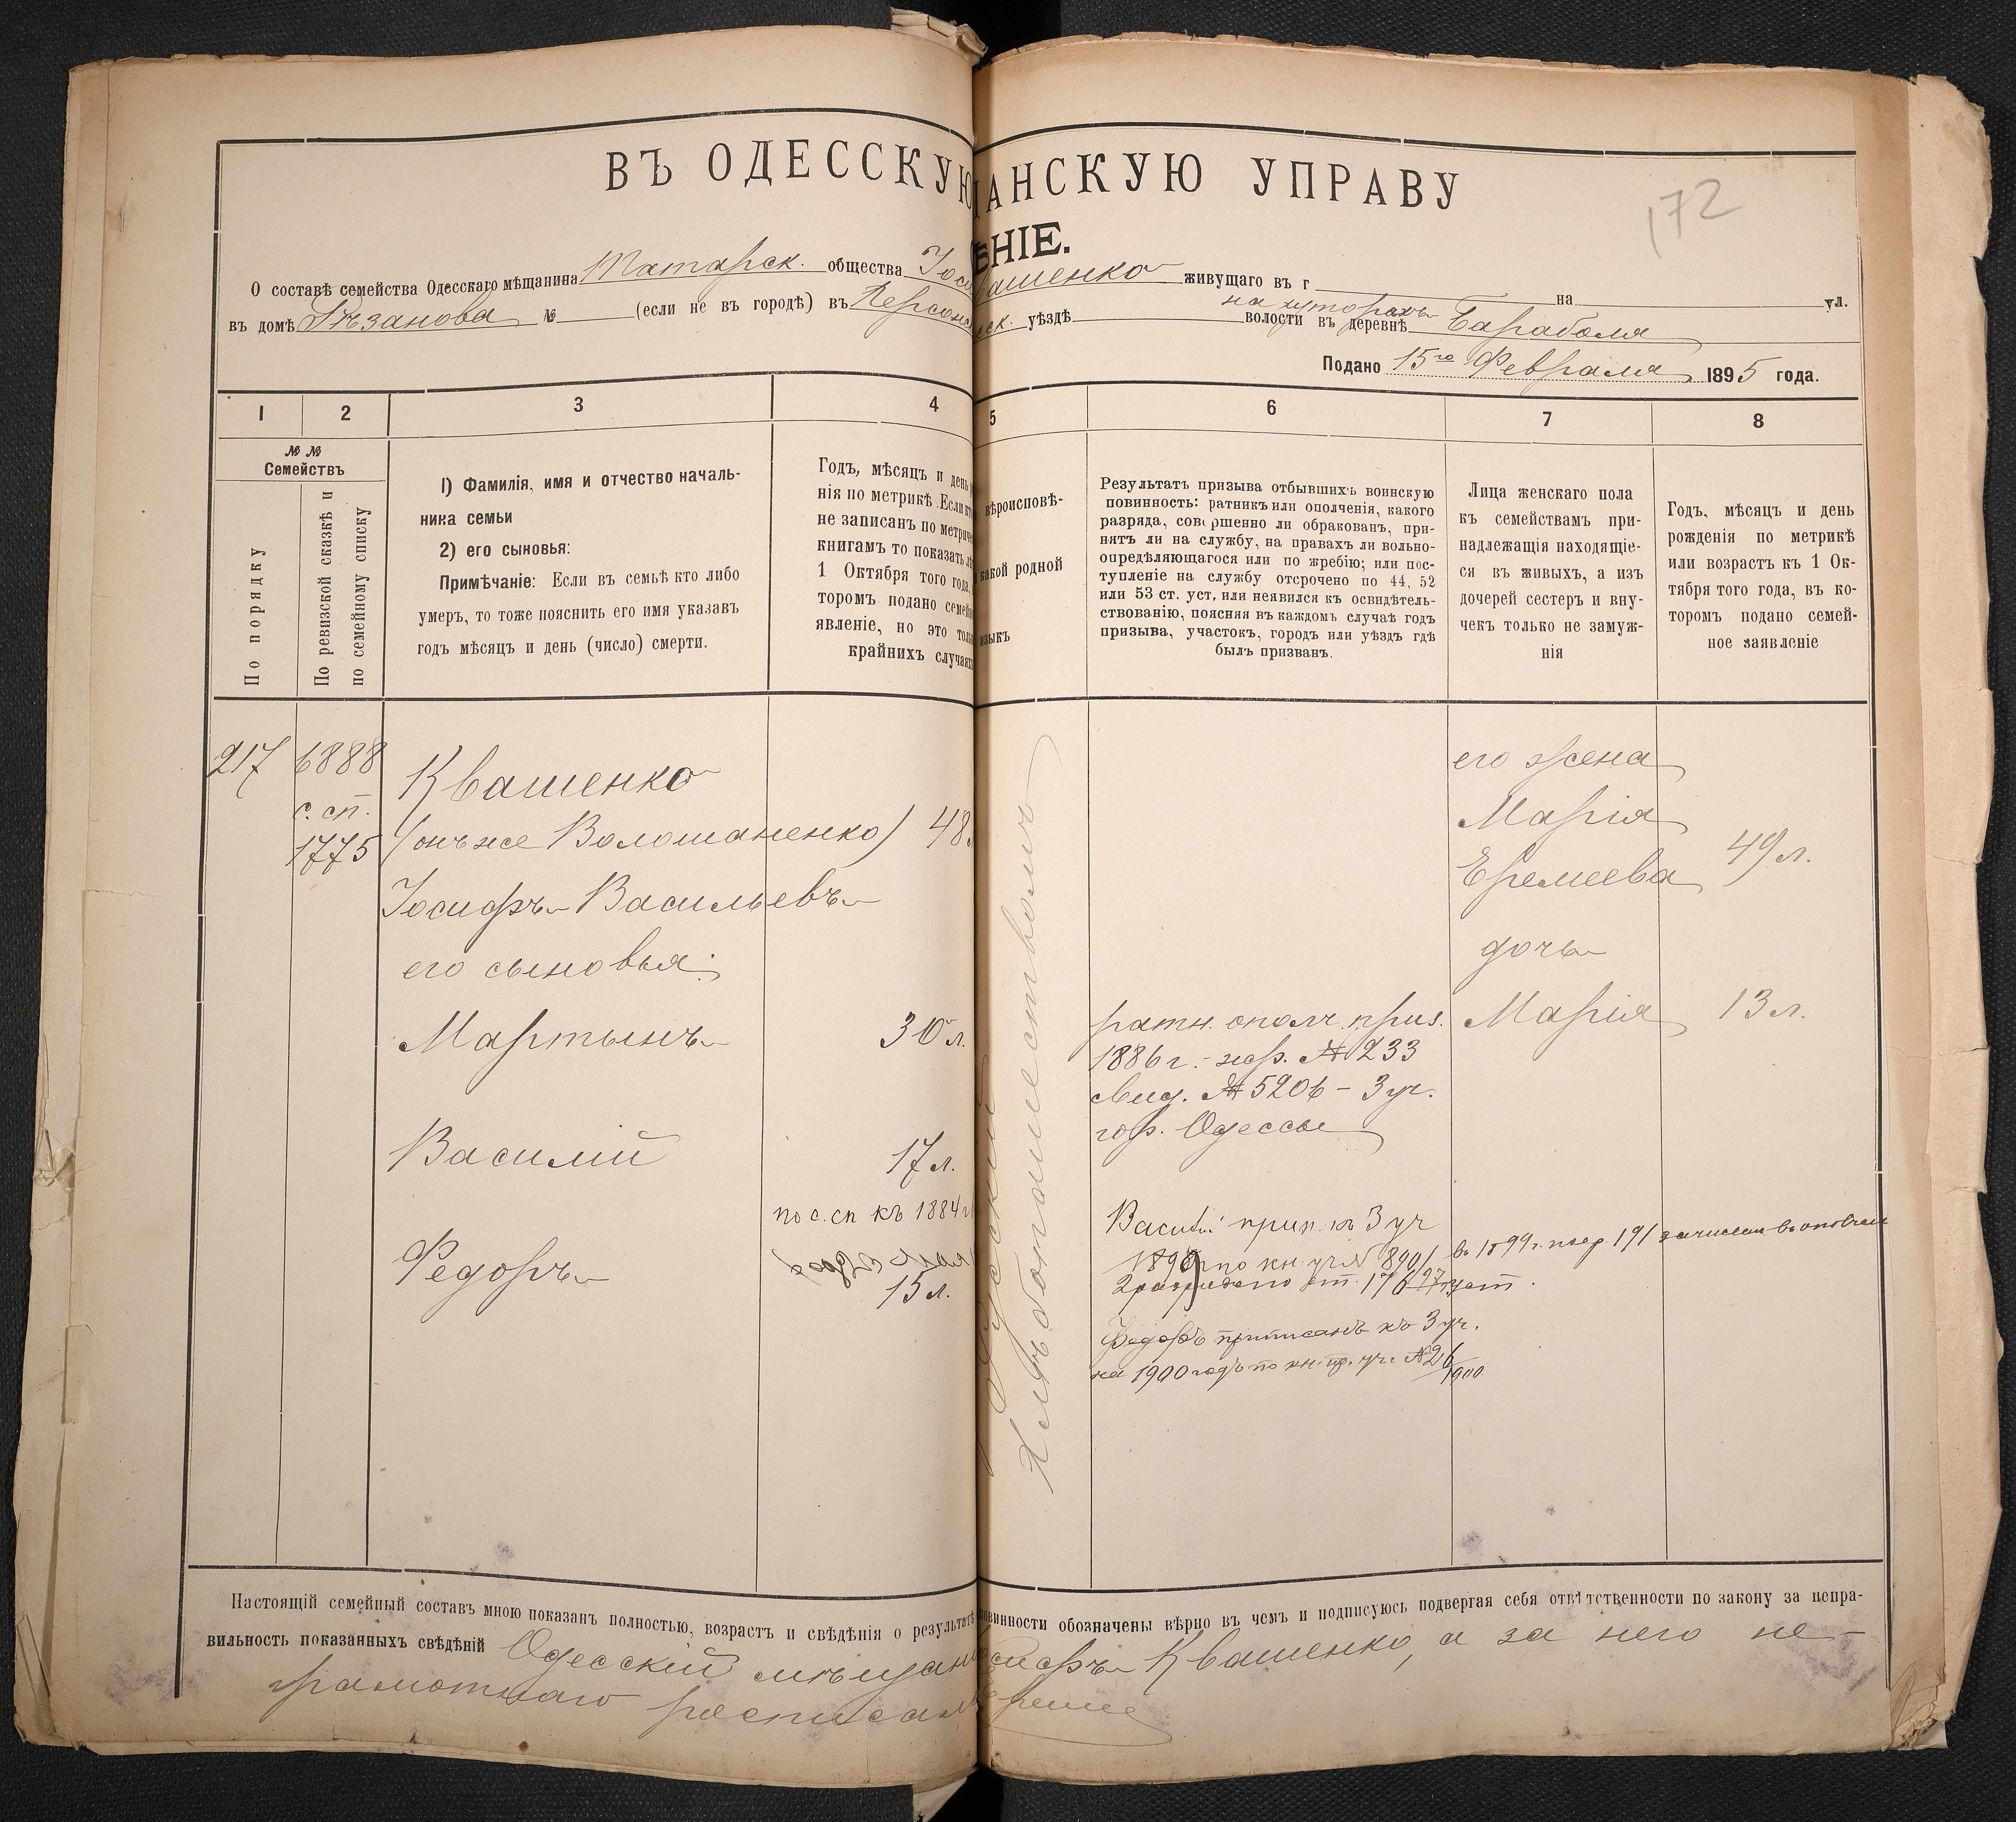 ВЪ ОДЕССКУЮ
АНСКУЮ УПРАВУ
172
ѢНІЕ.
О составѣ семейства Одесскаго мѣщанина Татарск. общества Іоси
вашенко живущаго въ г на ул.
въ домѣ Рѣзанова № (если не въ городѣ) въ Херсонс
ск. уѣздѣ волости въ деревнѣ на хуторахъ Бараболя
Подано 15го Февраля 1895 года.
1 2 3 4 5 6 7 8
№ №
Семействъ
По порядку
По ревизской сказкѣ и
по семейному списку
1) Фамилія, имя и отчество началь-
ника семьи
2) его сыновья:
Примѣчаніе: Если въ семьѣ кто либо
умеръ, то тоже пояснить его имя указавъ
годъ мѣсяцъ и день (число) смерти.
Годъ, мѣсяцъ и день
нія по метрикѣ. Если
не записанъ по метри
книгамъ то показать
1 Октября того года,
торомъ подано семей
явленіе, но это толь
крайнихъ случаях
вѣроисповѣ-
какой родной
языкъ
Результатъ призыва отбывшихъ воинскую
повинность: ратникъ или ополченія, какого
разряда, совершенно ли обракованъ, при-
нятъ ли на службу, на правахъ ли вольно-
опредѣляющагося или по жребію; или пос-
тупленіе на службу отсрочено по 44, 52
или 53 ст. уст. или неявился къ освидѣтель-
ствованію, поясняя въ каждомъ случаѣ годъ
призыва, участокъ, городъ или уѣздъ гдѣ
былъ призванъ.
Лица женскаго пола
къ семействамъ при-
надлежащія находящіе-
ся въ живыхъ, а изъ
дочерей сестеръ и вну-
чекъ только не замуж-
нія
Годъ, мѣсяцъ и день
рожденія по метрикѣ
или возрастъ къ 1 Ок-
тября того года, въ ко-
торомъ подано семей-
ное заявленіе
217
6888
с. сп.
1775
Квашенко
(онъ же Волошаненко) 48
Іосифъ Васильевъ
его сыновья:
Мартынъ 30 л.
Василій 17 л.
по с. сп къ 1884 г
Федоръ 15 л.
Русскій
ратн. ополч. приз.
1886 г. - жер. № 233
свид. № 5206 - 3 уч.
гор. Одессы
Василій прип. къ 3 уч
по кн. уч. № 890/ въ 1899 г. жер 191 зачислен въ ополчен
Федоръ приписанъ къ 3 уч.
на 1900 годъ по кн. пр. уч. № 26/1900
его жена
Марія
Еремеева 49 л.
дочь
Марія 13 л.
Настоящій семейный составъ мною показанъ полностью, возрастъ и свѣдѣнія о результатѣ
повинности обозначены вѣрно въ чемъ и подписуюсь подвергая себя отвѣтственности по закону за непра-
вильность показанныхъ свѣдѣній Одесскій мѣщани
осифъ Квашенко, а за него не-
грамотнаго росписал